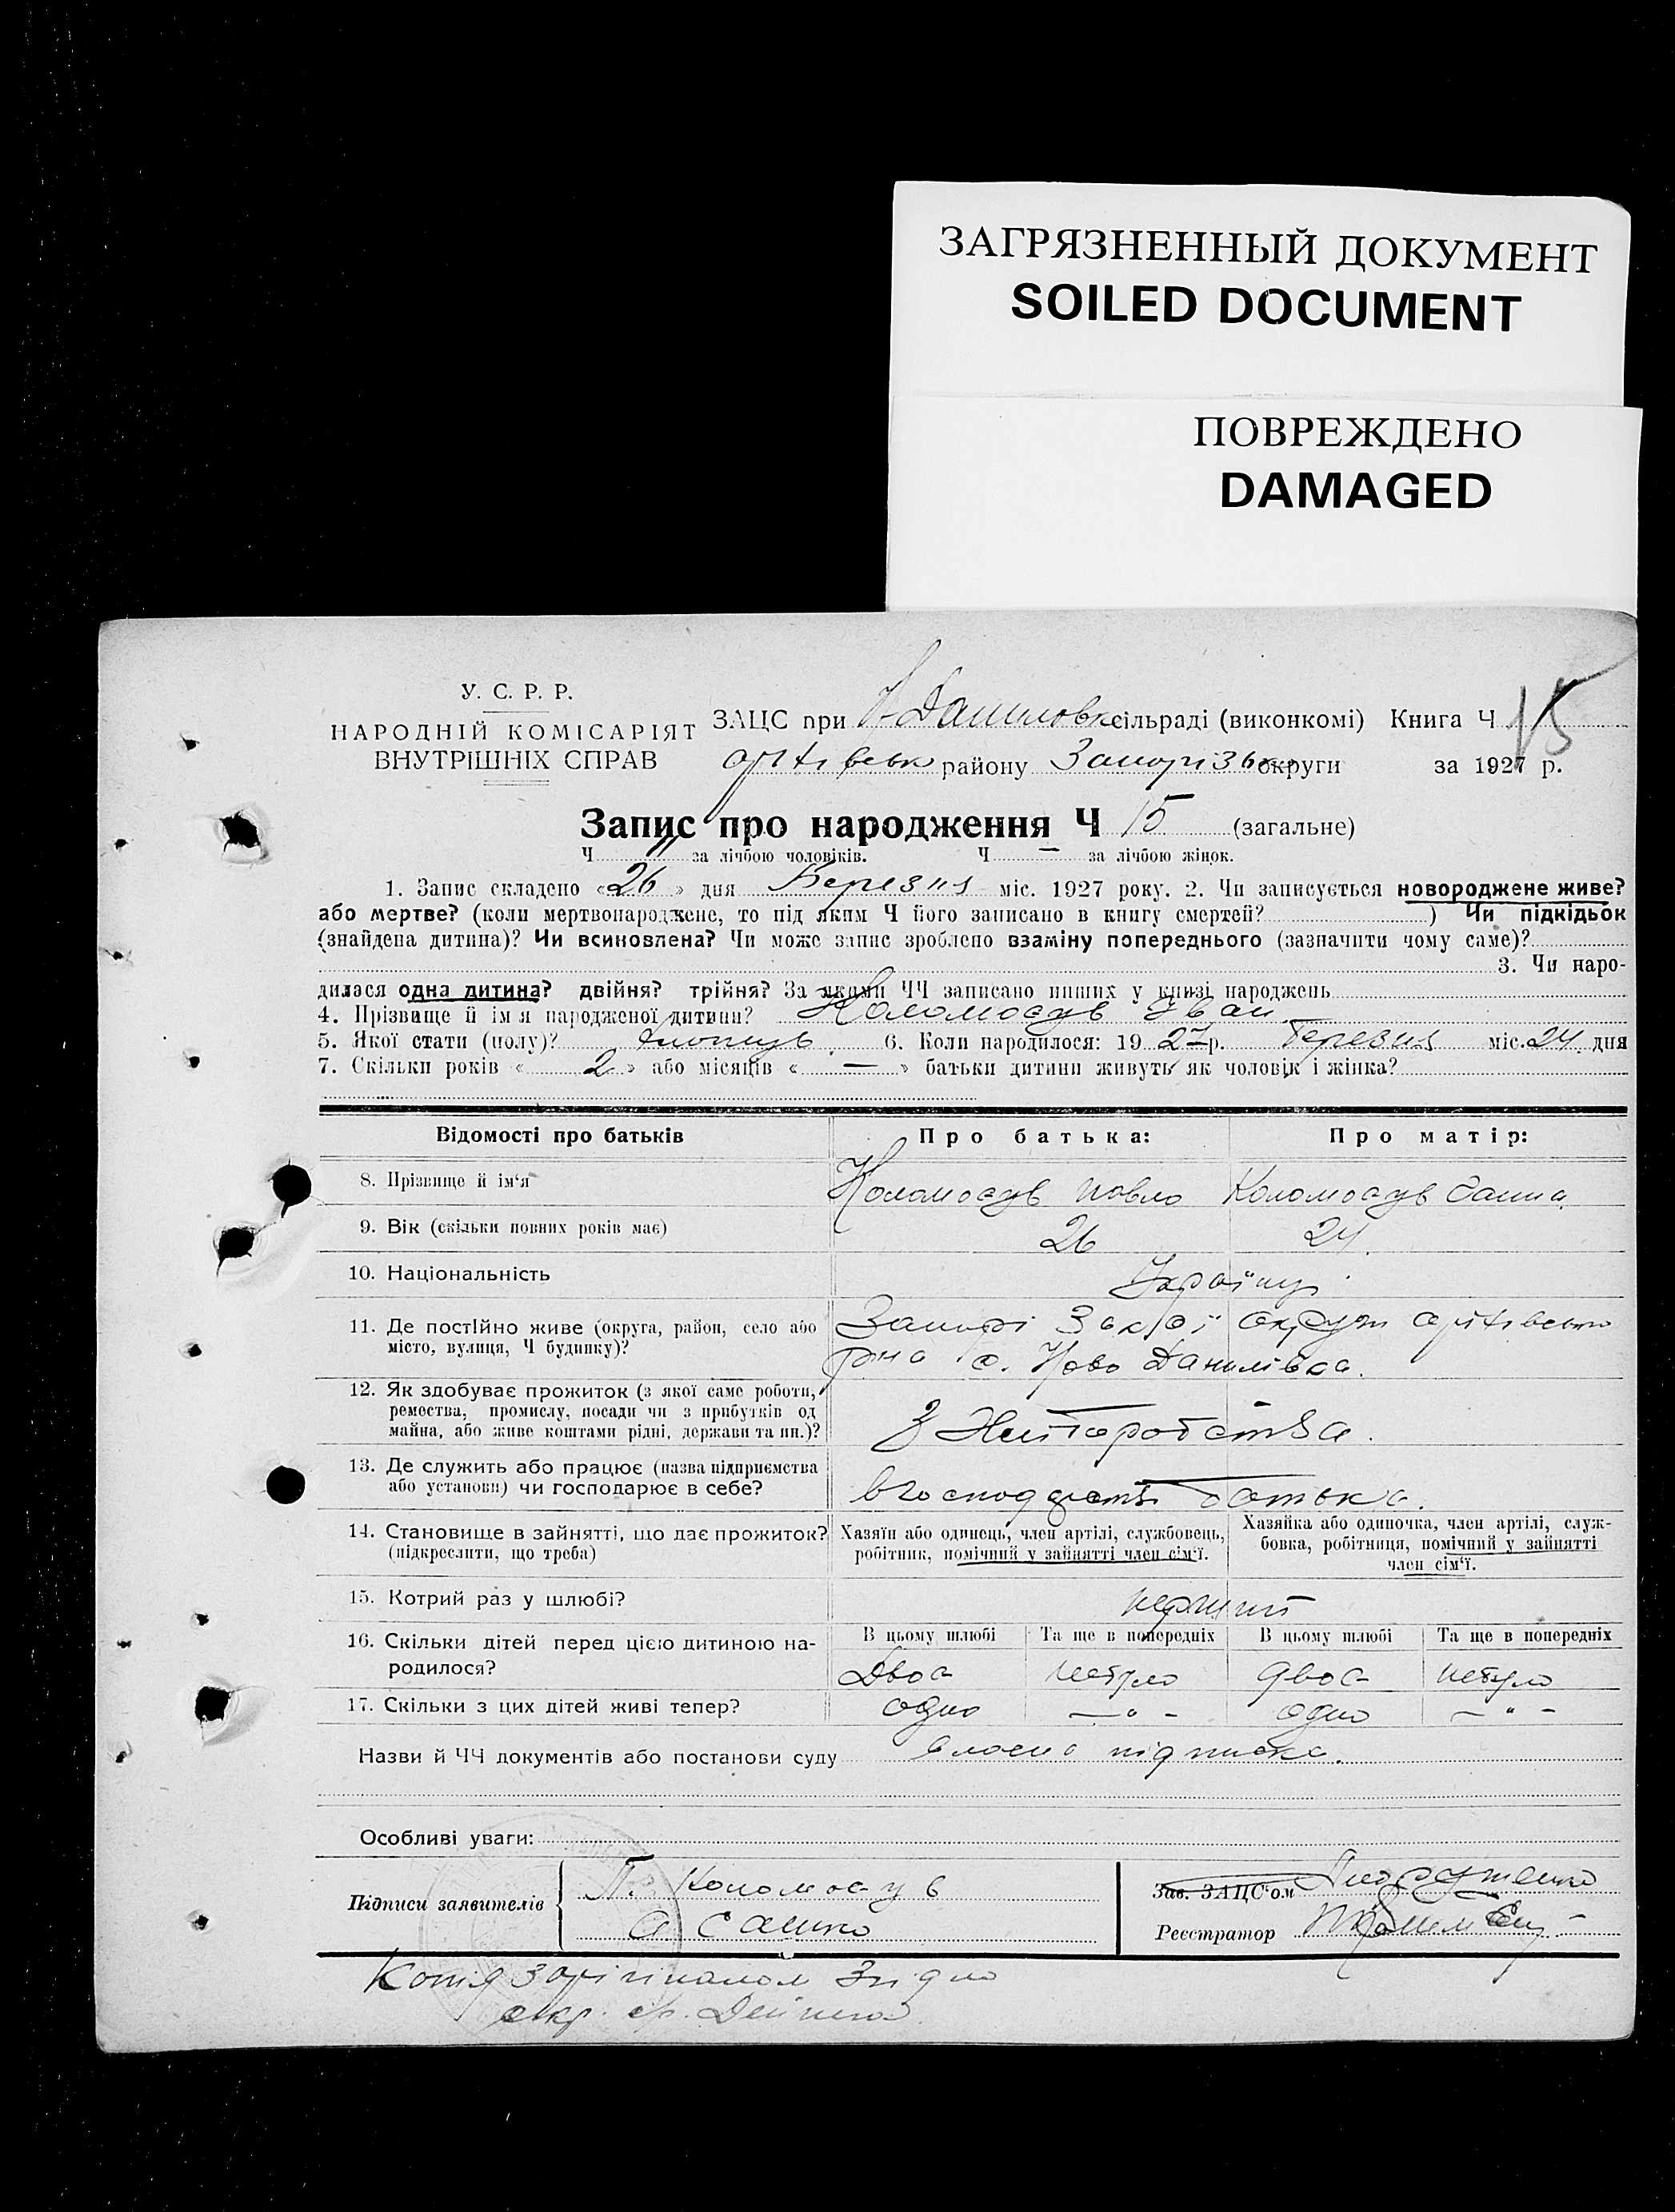 ЗАГРЯЗНЕННЫЙ ДОКУМЕНТ
SOILED DOCUMENT
ПОВРЕЖДЕНО
DAMAGED
У. С. Р. Р.
НАРОДНІЙ КОМІСАРІЯТ
ВНУТРІШНІХ СПРАВ
ЗАЦС при Н-Даниловк сільраді (виконкомі) Книга Ч 15
району Запорізьк округи за 1927 р.
Запис про народження Ч 15 (загальне)
Ч 11 за лічбою чоловіків. Ч — за лічбою жінок.
1. Запис складено «26» дня Березня міс. 1927 року. 2. Чи записується новороджене живе?
або мертве? (коли мертвонароджене, то під яким Ч його записано в книгу смертей? ) Чи підкідьок
(знайдена дитина)? Чи всиновлена? Чи може запис зроблено взаміну попереднього (зазначити чому саме)?
3. Чи наро-
дилася одна дитина? двійня? трійня? За якими ЧЧ записано инших у книзі народжень
4. Прізвище й ім'я народженої дитини? Коломоєць Іван
5. Якої стати (полу)? Хлопець. 6. Коли народилося: 1927 р. Березня міс. 24 дня
7. Скільки років «2» або місяців «—» батьки дитини живуть як чоловік і жінка?
Відомості про батьків
Про батька:
Про матір:
8. Прізвище й ім'я Коломоєць Павло Коломоєць Ганна
9. Вік (скільки повних років має) 26 24
10. Національність Українці
11. Де постійно живе (округа, район, село або
місто, вулиця, Ч будинку)?
с. Ново Данилівка.
12. Як здобуває прожиток (з якої саме роботи,
ремества, промислу, посади чи з прибутків од
майна, або живе коштами рідні, держави та ин.)?
З Хліборобства.
13. Де служить або працює (назва підприємства
або установи) чи господарює в себе?
батька.
14. Становище в зайнятті, що дає прожиток?
(підкреслити, що треба)
Хазяїн або одинець, член артілі, службовець,
робітник, помічний у зайнятті член сім'ї.
Хазяйка або одиночка, член артілі, служ-
бовка, робітниця, помічний у зайнятті
член сім'ї.
15. Котрий раз у шлюбі? перший
16. Скільки дітей перед цією дитиною на-
родилося?
В цьому шлюбі Та ще в попередніх В цьому шлюбі Та ще в попередніх
Двоє небуло двоє небуло
17. Скільки з цих дітей живі тепер? одно — " - одно — " -
Назви й ЧЧ документів або постанови суду власна підписка.
Особливі уваги:
Підписи заявителів
П. Коломоєць
Зав. ЗАЦС'ом
Реєстратор
Копія з орігіналом згідно